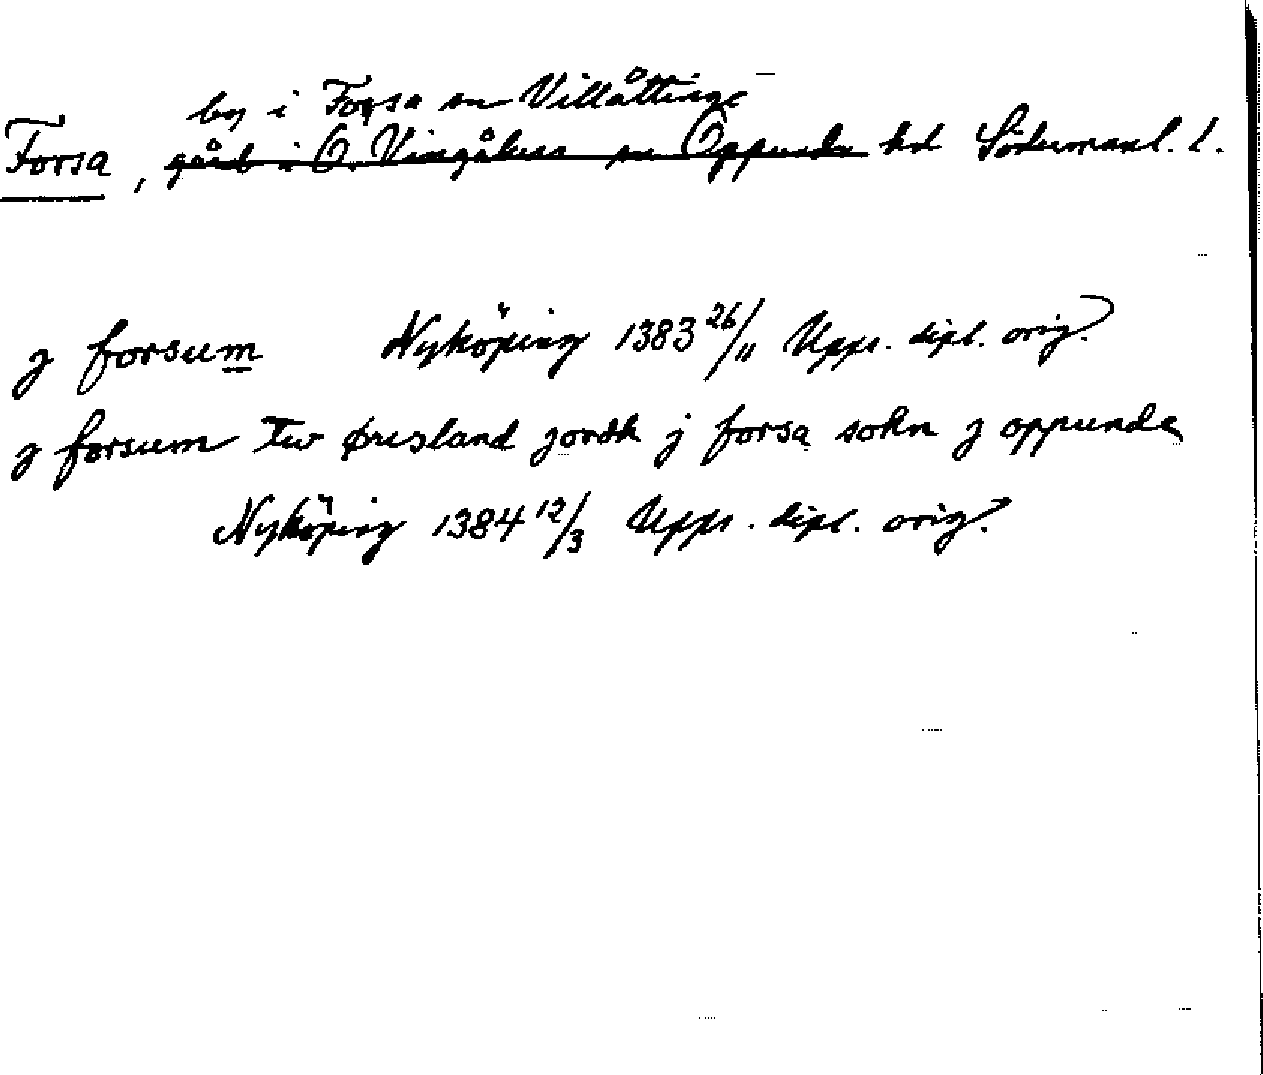 by i Forsa sn Villåttinge
Forsa, gård i Ö. Vingåkers sn Oppunda hd Södermanl. l.
j forsum Nyköping 1383 26/11 Upps. dipl. orig.
j forsum tw øresland jordh j forsa sokn j oppunda
Nyköping 1384 12/3 Upps. dipl. orig.